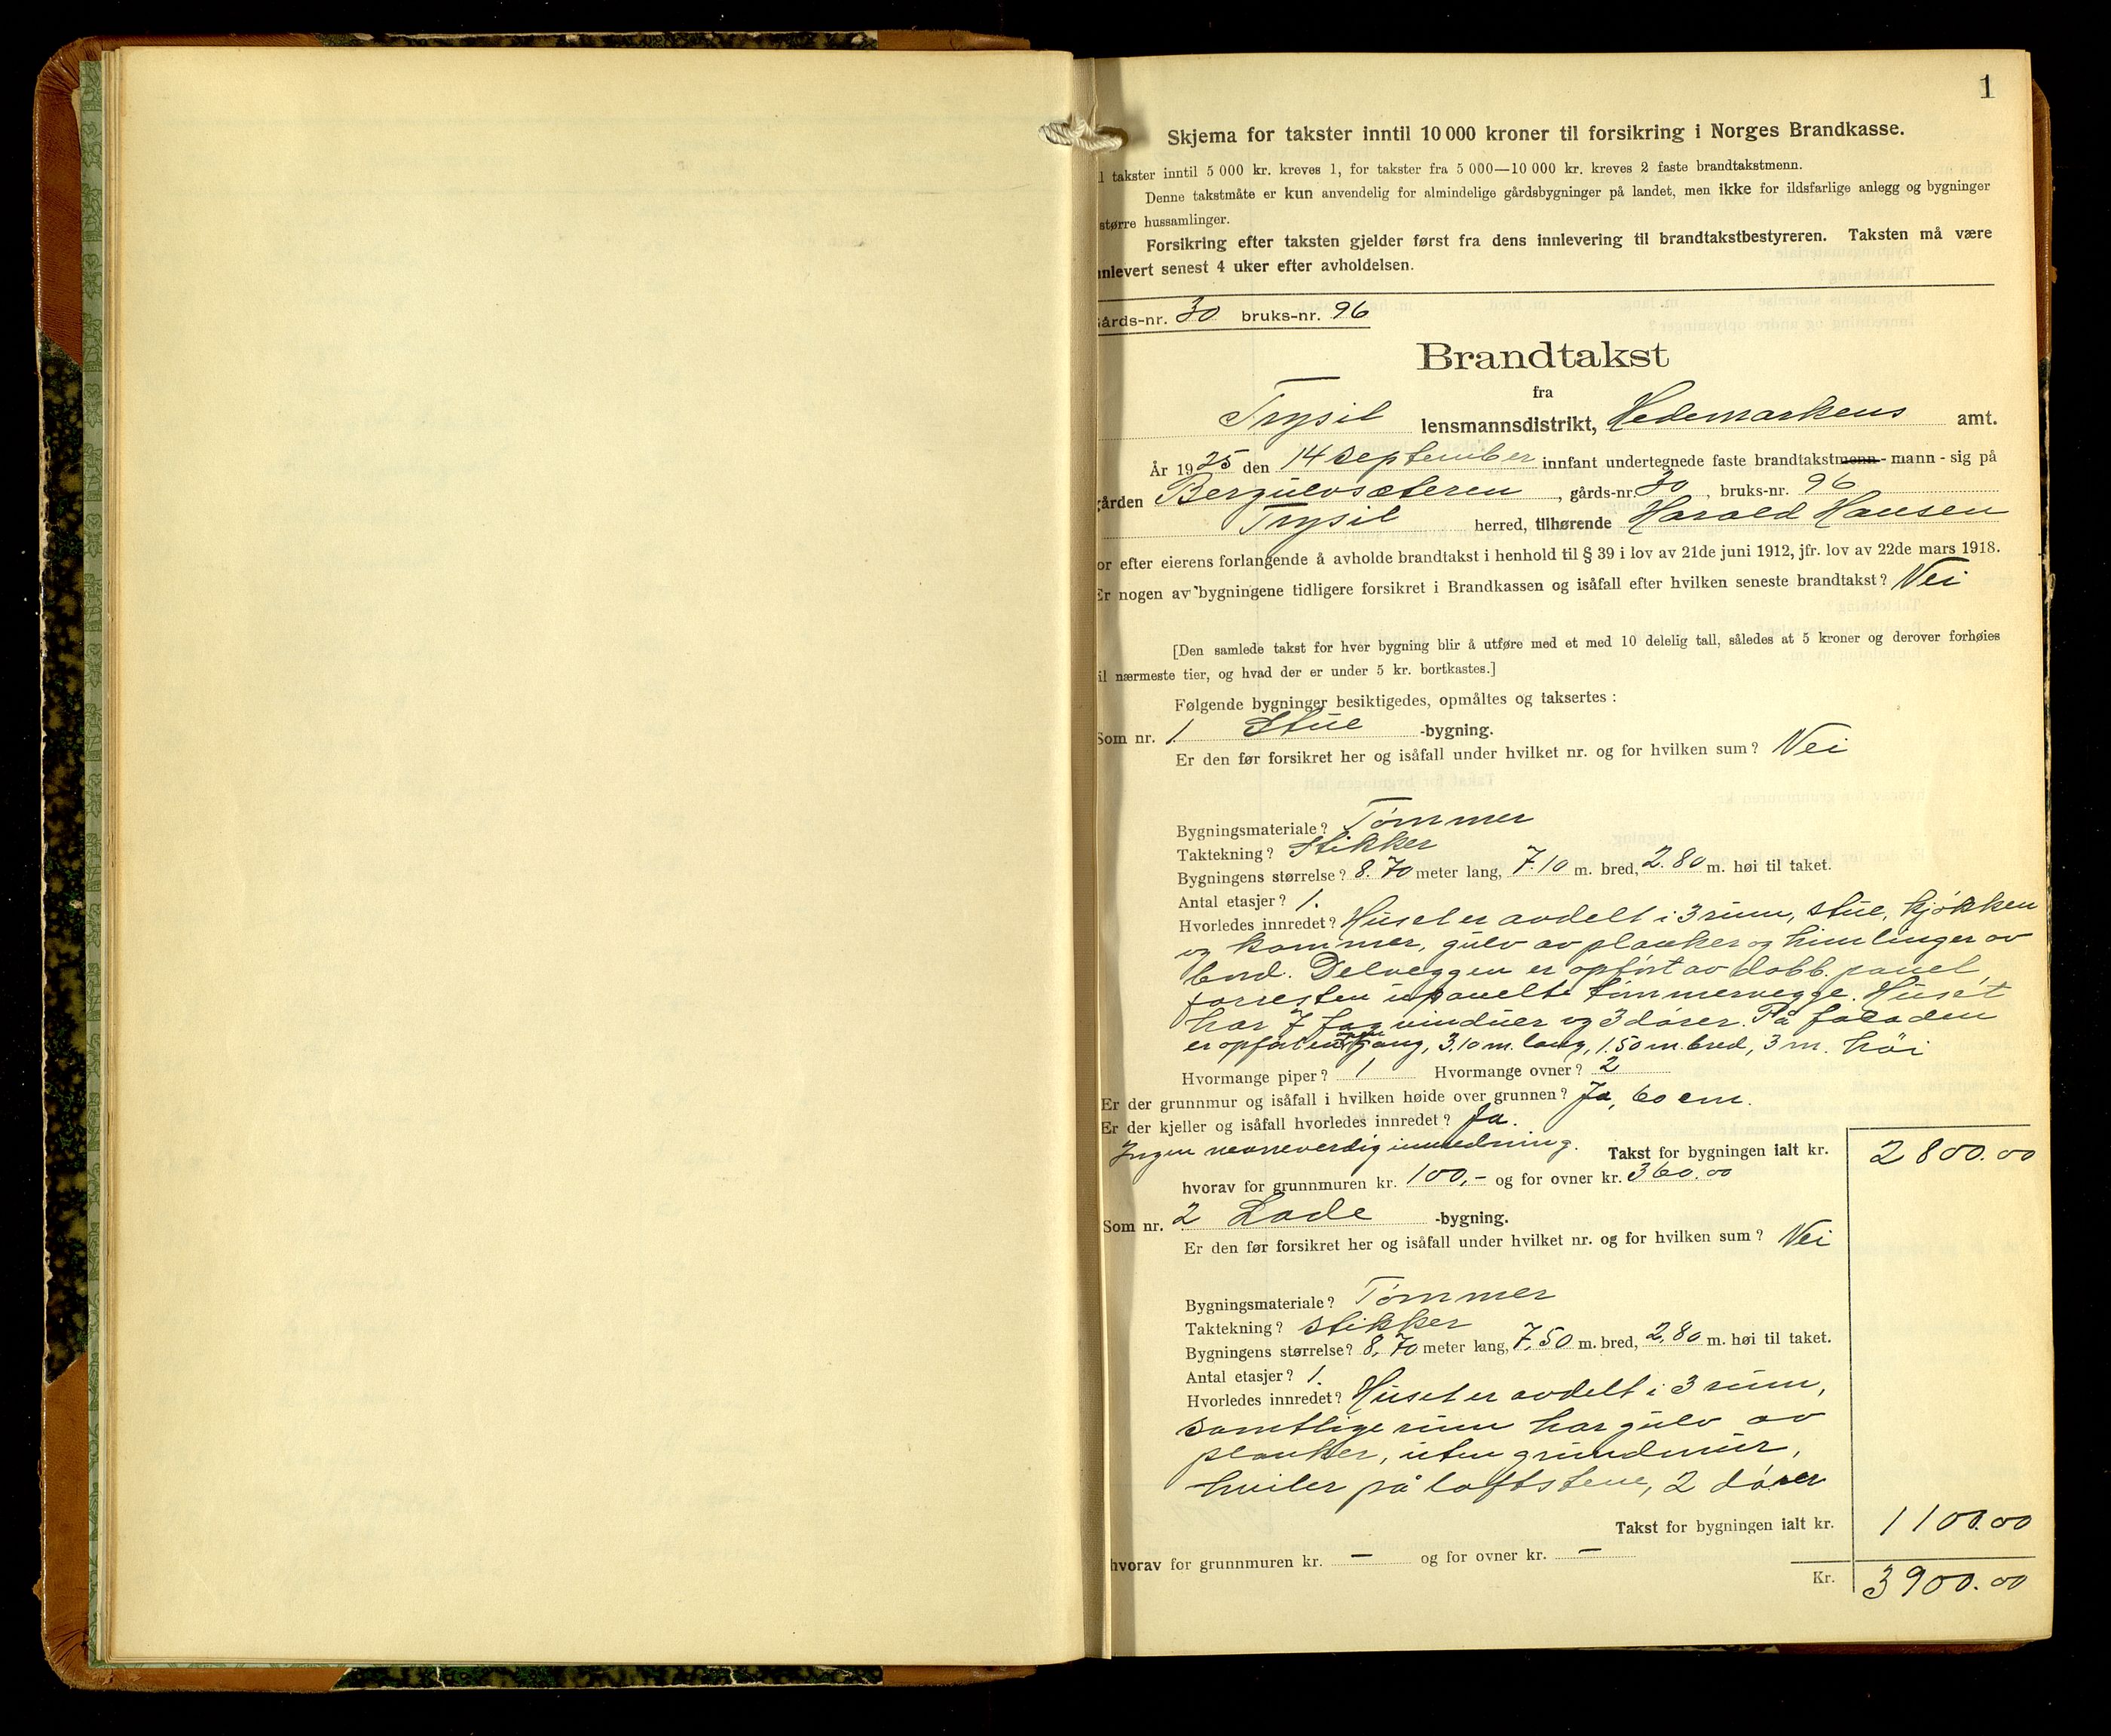 1
Skjema for takster inntil 10 000 kroner til forsikring i Norges Brandkasse.
l takster inntil 5 000 kr. kreves 1, for takster fra 5 000—10 000 kr. kreves 2 faste brandtakstmenn.
Denne takstmåte er kun anvendelig for almindelige gårdsbygninger på landet, men ikke for ildsfarlige anlegg og bygninger
større hussamlinger.
Forsikring efter taksten gjelder først fra dens innlevering til brandtakstbestyreren. Taksten må være
nnlevert senest 4 uker efter avholdelsen.
årds-nr. 30 bruks-nr. 96
Brandtakst
fra
Trysil lensmannsdistrikt, Hedemarkens amt.
År 1925 den 14 september innfant undertegnede faste brandtakstmenn - mann - sig på
gården Bergulvsæteren, gårds-nr. 30, bruks-nr. 96
Trysil herred, tilhørende Harald Hansen
or efter eierens forlangende å avholde brandtakst i henhold til § 39 i lov av 21de juni 1912, jfr. lov av 22de mars 1918.
Er nogen av bygningene tidligere forsikret i Brandkassen og isåfall efter hvilken seneste brandtakst? Nei
[Den samlede takst for hver bygning blir å utføre med et med 10 delelig tall, således at 5 kroner og derover forhøies
il nærmeste tier, og hvad der er under 5 kr. bortkastes.]
Følgende bygninger besiktigedes, opmåltes og taksertes:
Som nr. 1. Stue -bygning.
Er den før forsikret her og isåfall under hvilket nr. og for hvilken sum? Nei
Bygningsmateriale? Tømmer
Taktekning? Stikker
Bygningens størrelse? 8.70 meter lang, 7.10 m. bred, 2.80 m. høi til taket.
Antal etasjer? 1.
Hvorledes innredet? Huset er avdelt i 3 rum, stue, kjøkken
og kammer, gulv av planker og himlinger av
bord. Delveggen er opført av dobb. panel,
forresten upanelte tømmervegge. Huset
har 7 fag vinduer og 3 dører. På facaden
er opført en gang, 3.10 m. lang, 1.50 m. bred, 3 m. høi
Hvormange piper? 1 Hvormange ovner? 2
Er der grunnmur og isåfall i hvilken høide over grunnen? Ja, 60 cm.
Er der kjeller og isåfall hvorledes innredet? Ja.
Ingen nevneverdig innredning. Takst for bygningen ialt kr. 2800.00
hvorav for grunnmuren kr. 100,- og for ovner kr. 360.00
Som nr. 2 Lade -bygning.
Er den før forsikret her og isåfall under hvilket nr. og for hvilken sum? Nei
Bygningsmateriale? Tømmer
Taktekning? Stikker
Bygningens størrelse? 8,70 meter lang, 7,50 m. bred, 2,80 m. høi til taket.
Antal etasjer? 1.
Hvorledes innredet? Huset er avdelt i 3 rum,
samtlige rum har gulv av
planker, uten grundmur,
hviler på loftstene, 2 dører
Takst for bygningen ialt kr. 1100.00
hvorav for grunnmuren kr. — og for ovner kr. —
Kr. 3900.00